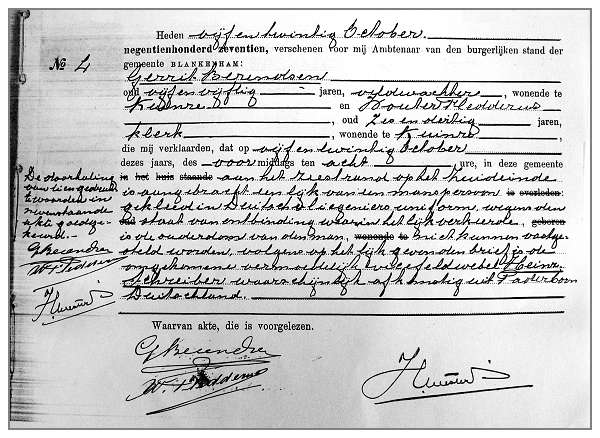 Heden vijf en twintig October
negentienhonderd zeventien, verschenen voor mij Ambtenaar van den burgerlijken stand der
gemeente BLANKENHAM:
No 4
Gerrit Berendsen
oud vijf en vijftig jaren, veldwachter, wonende te
Kuinre en Wouter Fledderus
oud zes en dertig jaren,
klerk, wonende te Kuinre
die mij verklaarden, dat op vijf en twintig October
dezes jaars, des voormiddags ten acht ure, in deze gemeente
in het huis staande aan het zeestrand op het kuideinde
is aangetroffen een lijk van een manspersoon is overleden:
gekleed in Duitsch uniform, wegens den
staat van ontbinding waarin het lijk verkeerde, geboren
is de ouderdom van den man, wonende te niet kunnen vastge-
steld worden, volgens op het lijk gevonden brief is de
omgekomene vermoedelijk vicefeldwebel Heinz
Schreiber waarschijnlijk afkomstig uit Paderborn
Duitschland.
De doorhaling
van tien gedrukte
woorden in
nevenstaande
akte goedge-
keurd.
GBerendsen
W. Fledderus
Waarvan akte, die is voorgelezen.
GBerendsen
W. Fledderus